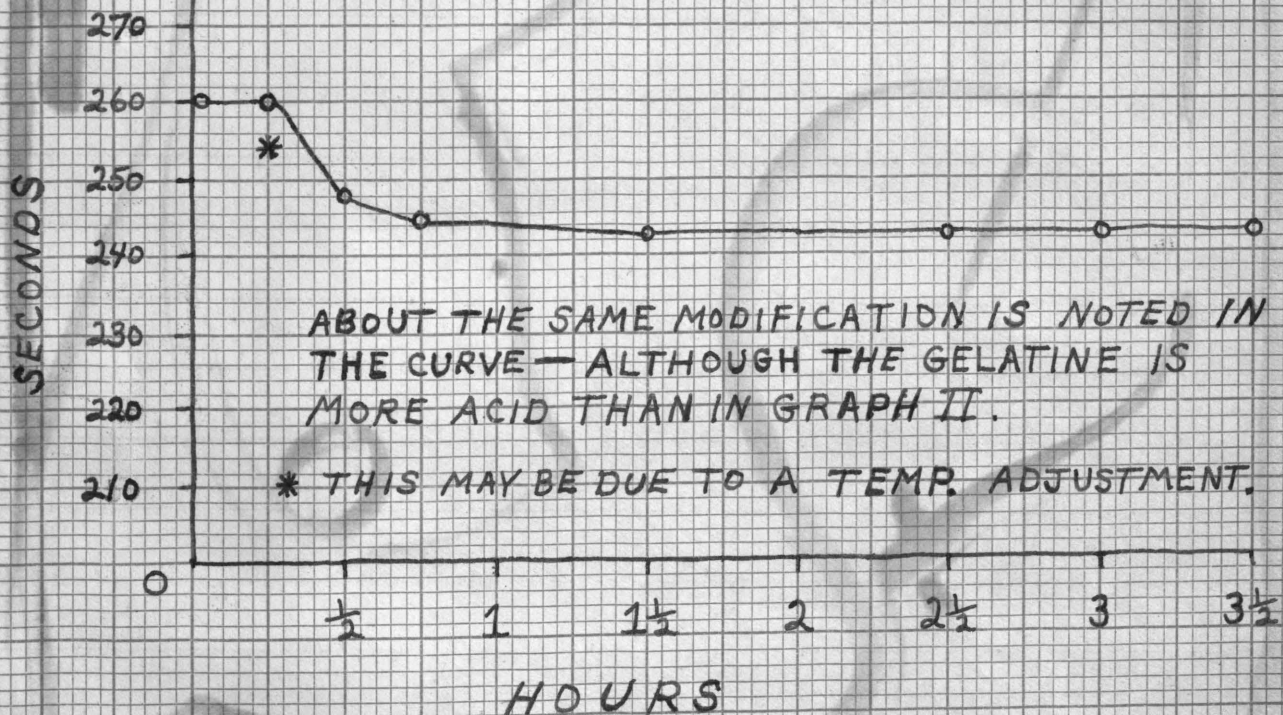 270
260
*
250
240
230
220
210
SECONDS
ABOUT THE SAME MODIFICATION IS NOTED IN
THE CURVE — ALTHOUGH THE GELATINE IS
MORE ACID THAN IN GRAPH II.
* THIS MAY BE DUE TO A TEMP. ADJUSTMENT.
0
½ 1 1½ 2 2½ 3 3½
HOURS